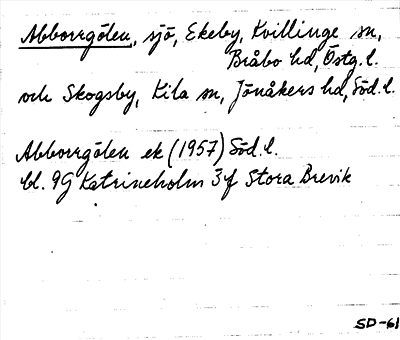 Abborrgölen, sjö, Ekeby, Kvillinge sn,
Bråbo hd, Östg. l.
och Skogsby, Kila sn, Jönåkers hd, Söd. l.
Abborrgölen ek (1957) Söd. l.
bl. 9G Katrineholm 3f Stora Brevik
SD-61